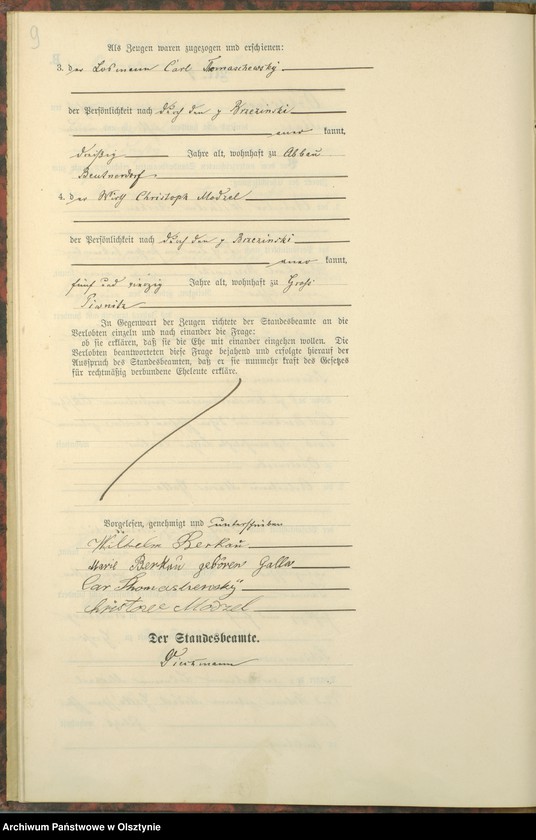 9
Als Zeugen waren zugezogen und erschienen:
3. der Losmann Carl Tomaschewsky
der Persönlichkeit nach durch den p Brzezinski
aner kannt,
dreißig Jahre alt, wohnhaft zu Abbau
Beutnerdorf.
4. der Wirth Christoph Modzel
der Persönlichkeit nach durch den p Brzezinski
aner kannt,
fünf und vierzig Jahre alt, wohnhaft zu Groß
Piwnitz
In Gegenwart der Zeugen richtete der Standesbeamte an die
Verlobten einzeln und nach einander die Frage:
ob sie erklären, daß sie die Ehe mit einander eingehen wollen. Die
Verlobten beantworteten diese Frage bejahend und erfolgte hierauf der
Ausspruch des Standesbeamten, daß er sie nunmehr kraft des Gesetzes
für rechtmäßig verbundene Eheleute erkläre.
Vorgelesen, genehmigt und unterschrieben
Wilhelm Berkau
Marie Berkau geboren Galla
Car Thomaschewsky
Christoec Modzel
Der Standesbeamte.
Archiwum Państwowe w Olsztynie